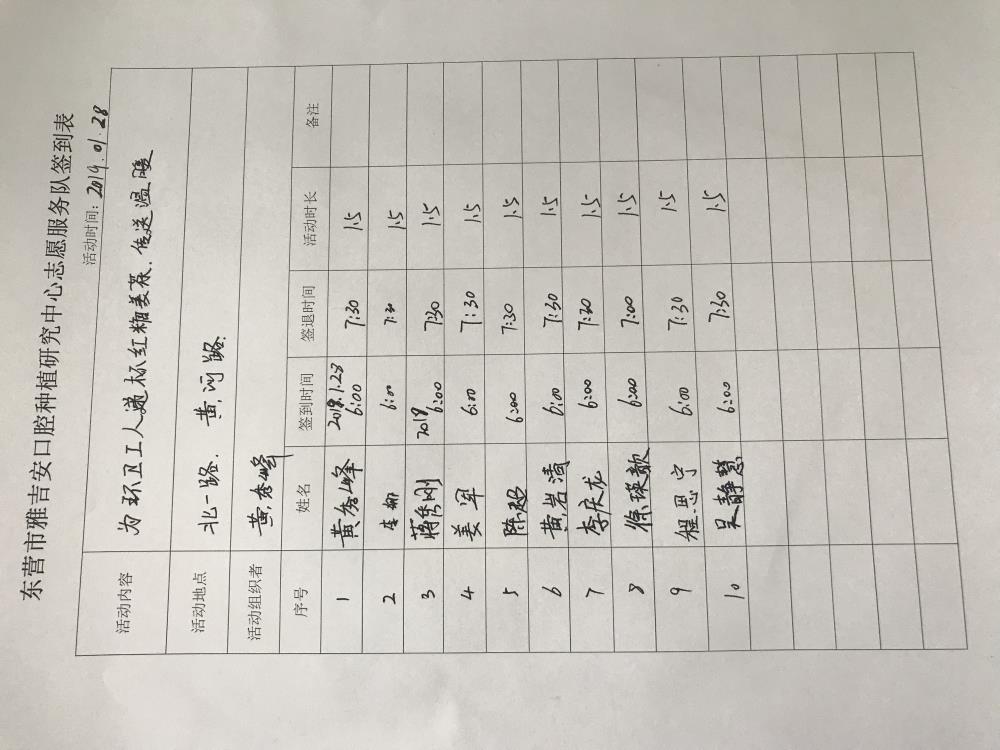 东营市雅吉安口腔种植研究中心志愿服务队签到表
活动时间：2019.01.28
活动内容 为环卫工人递杯红糖姜茶.传送温暖
活动地点 北一路. 黄河路.
活动组织者 黄秀峰
序号 姓名 签到时间 签退时间 活动时长 备注
1 黄秀峰 2019.1.28 6:00 7:30 1.5
2 6:00 7:30 1.5
3 蒋秀刚 2019 6:00 7:30 1.5
4 姜军 6:00 7:30 1.5
5 陈超 6:00 7:30 1.5
6 黄岩涛 6:00 7:30 1.5
7 李庆龙 6:00 7:30 1.5
8 徐瑛歆 6:00 7:00 1.5
9 程思宁 6:00 7:30 1.5
10 吴静慧 6:00 7:30 1.5